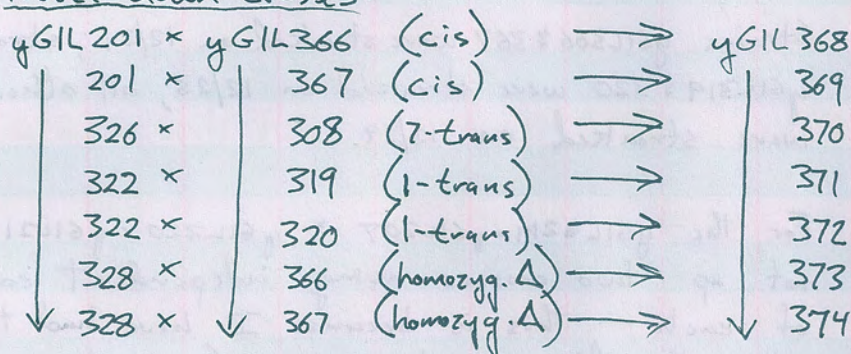 yGIL 201 × yGIL 366 (cis) → yGIL 368
201 × 367 (cis) → 369
326 × 308 (7-trans) → 370
322 × 319 (1-trans) → 371
322 × 320 (1-trans) → 372
328 × 366 (homozyg. Δ) → 373
328 × 367 (homozyg. Δ) → 374